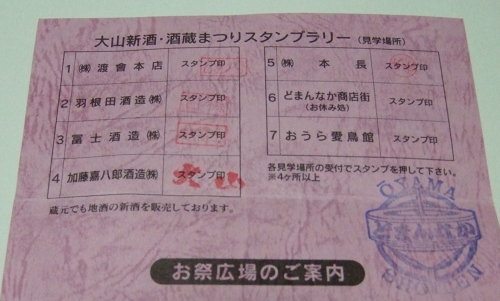 大山新酒・酒蔵まつりスタンプラリー(見学場所)
1 ㈱渡會本店 スタンプ印
2 羽根田酒造㈱ スタンプ印
3 冨士酒造㈱ スタンプ印
4 加藤嘉八郎酒造㈱ スタンプ印
大山
5 ㈱本長 スタンプ印
6 どまんなか商店街 (お休み処) スタンプ印
7 おうら愛鳥館 スタンプ印
各見学場所の受付でスタンプを押して下さい。
※4ヶ所以上
蔵元でも地酒の新酒を販売しております。
OYAMA
どまんなか
SHOTEN
お祭広場のご案内